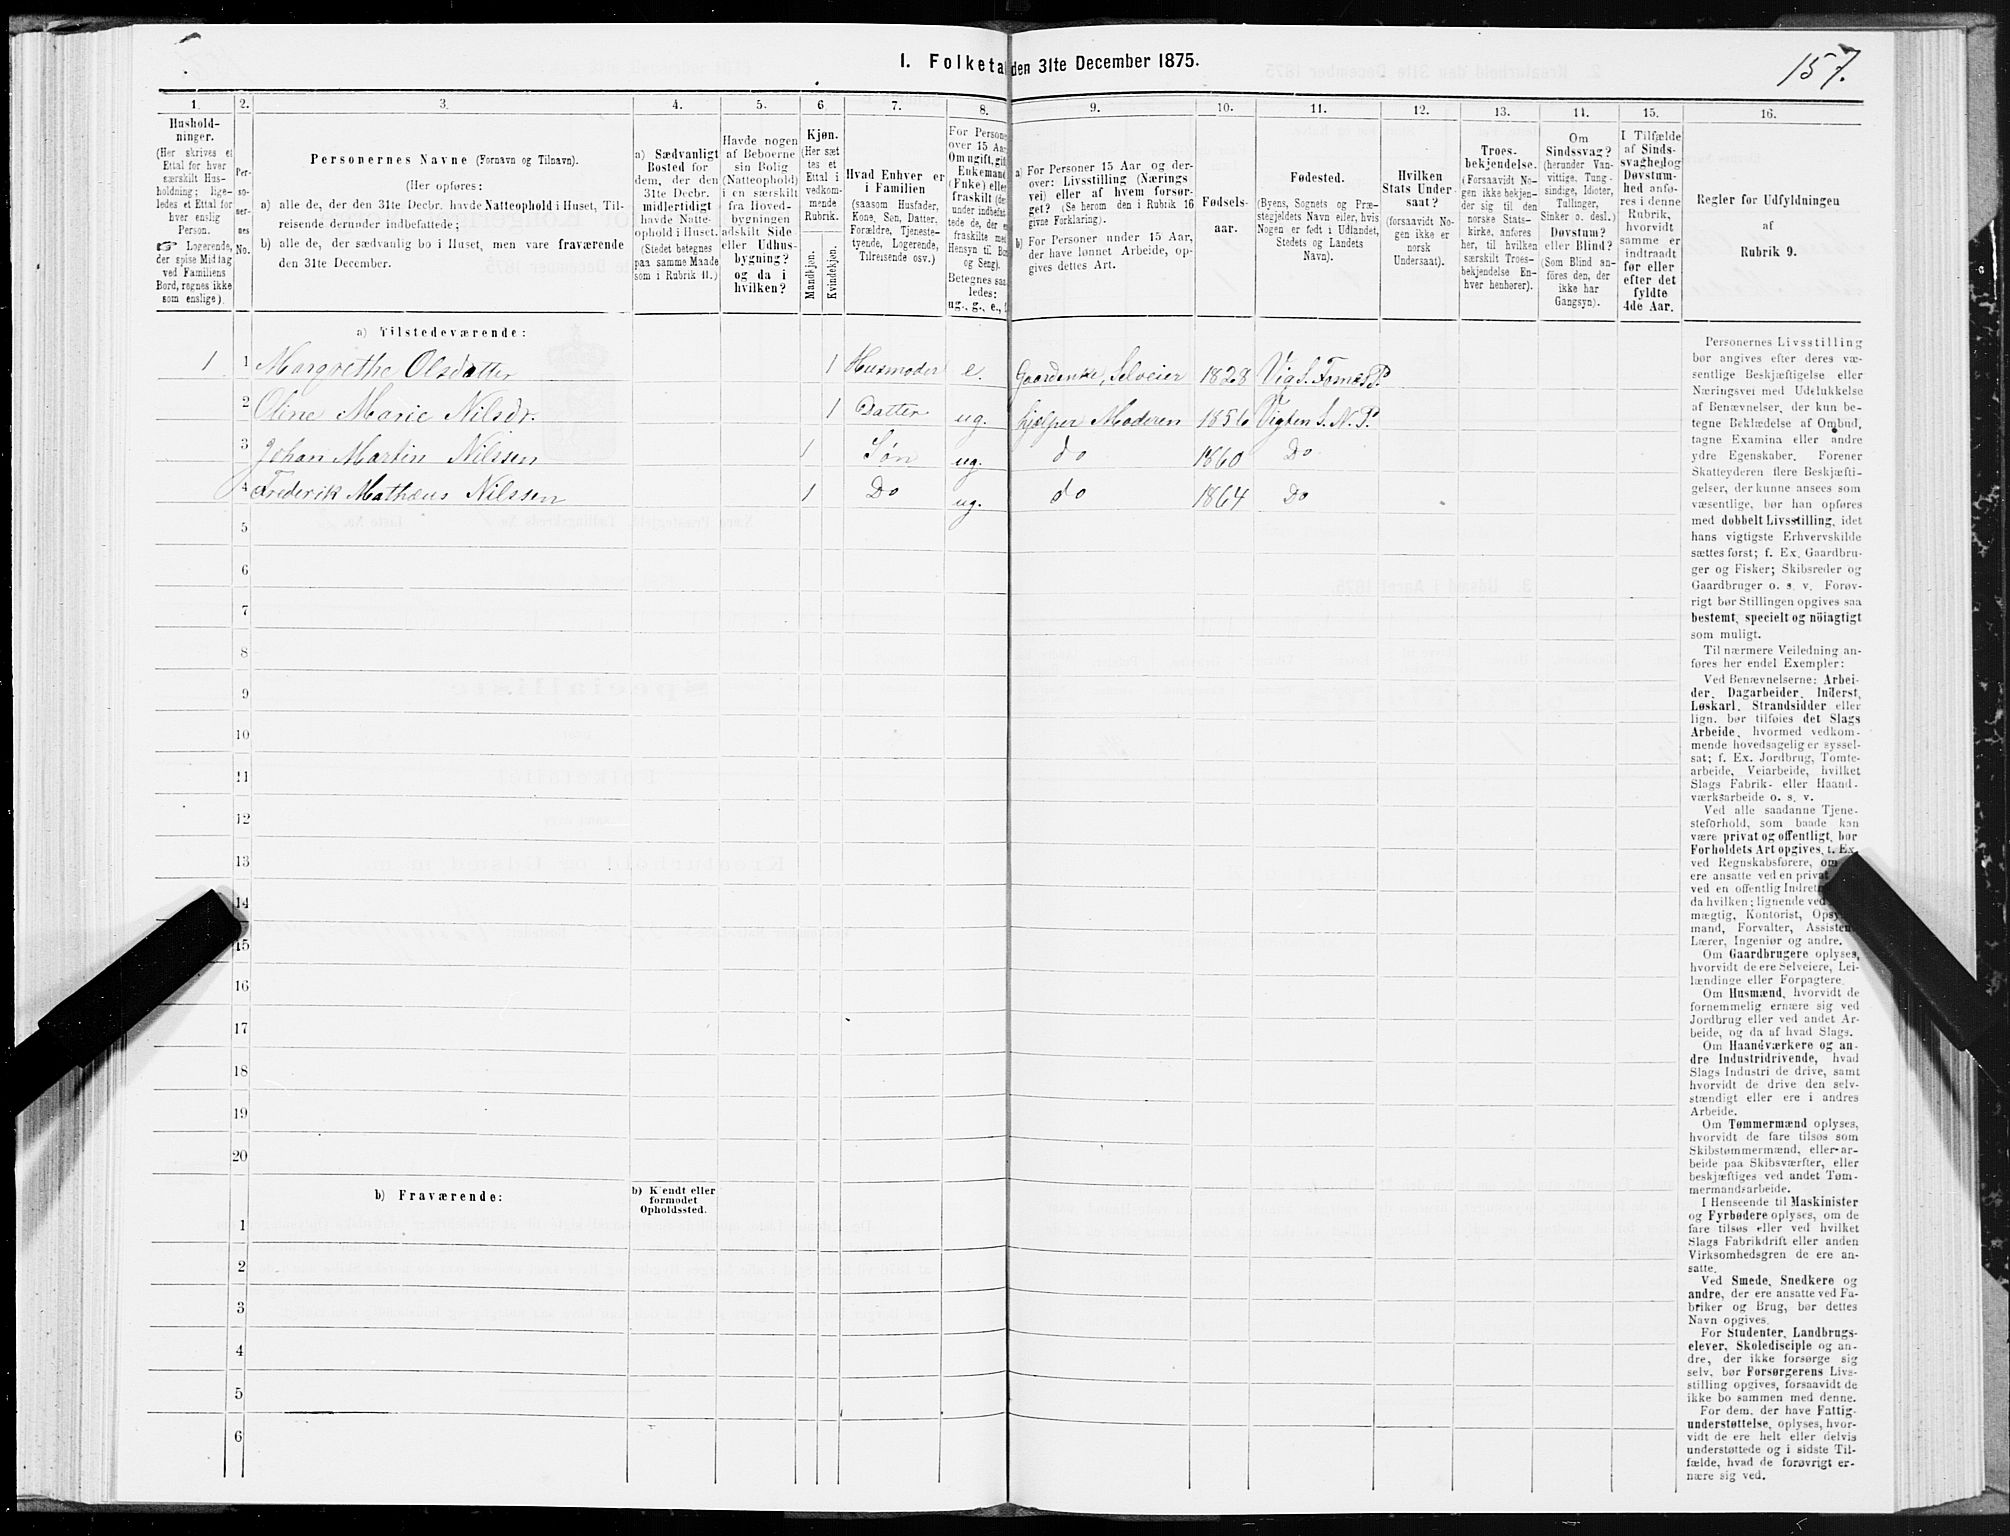 I. Folketa den 31te December 1875.
157.
1. 2. 3. 4. 5. 6. 7. 8. 9. 10. 11. 12. 13. 14. 15. 16.
Hushold-
ninger.
(Her skrives et
Ettal for hver
særskilt Hus-
holdning; lige-
ledes et Ettal for
hver enslig
Person.
☞ Logerende,
der spise Middag
ved Familiens
Bord, regnes ikke
som enslige).
Per-
so-
ner-
nes
No.
Personernes Navne (Fornavn og Tilnavn).
(Her opføres:
a) alle de, der den 31te Decbr. havde Natteophold i Huset, Til-
reisende derunder indbefattede;
b) alle de, der sædvanlig bo i Huset, men vare fraværende
den 31te December.
a) Sædvanligt
Bosted for
dem, der den
31te Decbr.
midlertidigt
havde Natte-
ophold i Huset.
(Stedet betegnes
paa samme Maade
som i Rubrik 11.)
Havde nogen
af Beboerne
sin Bolig
(Natteophold)
i en særskilt
fra Hoved-
bygningen
adskilt Side-
eller Udhus-
bygning?
og da i
hvilken?
Kjøn.
(Her sæt
tes et
Ettal i
vedkom-
mende
Rubrik.
Mandkjøn.
Kvindekjøn.
Hvad Enhver er
i Familien
(saasom Husfader,
Kone, Søn, Datter,
Forældre, Tjeneste-
tyende, Logerende,
Tilreisende osv.)
For Person
over 15 Aar
Om ugift, gift
Enkemand
(Enke) eller
fraskilt (der
under indbefat
tede de, der e
fraskilte med
Hensyn til Bor
og Seng).
Betegnes saa
ledes:
ug., g., e., f
a) For Personer 15 Aar og der-
over: Livsstilling (Nærings
vei) eller af hvem forsør-
get? (Se herom den i Rubrik 16
givne Forklaring).
b) For Personer under 15 Aar,
der have lønnet Arbeide, op-
gives dettes Art.
Fødsels-
aar.
Fødested.
(Byens, Sognets og Præ-
stegjeldets Navn eller, hvis
Nogen er født i Udlandet,
Stedets og Landets
Navn).
Hvilken
Stats Under
saat?
(forsaavidt No-
gen ikke er
norsk
Undersaat).
Troes-
bekjendelse.
(Forsaavidt No-
gen ikke bekjen-
der sig til den
norske Stats-
kirke, anføres
her, til hvilken
særskilt Troes-
bekjendelse En-
hver henhører).
Om
Sindssvag?
(herunder Van-
vittige, Tung-
sindige, Idioter,
Tullinger,
Sinker o. desl.)
Døvstum?
eller Blind?
(Som Blind an-
føres den, der
ikke har
Gangsyn).
I Tilfælde
af Sinds-
svaghed og
Døvstum-
hed anfø-
res i denne
Rubrik,
hvorvidt
samme er
indtraadt
før eller
efter det
fyldte
4de Aar.
Regler for Udfyldningen
af
Rubrik 9.
a) Tilstedeværende:
1 1 Margrethe Olsdatter 1 Husmoder e. Gaardenke, Selveier 1828 Vig S. Fosnæs P.
2 Oline Marie Nilsdr. 1 Datter ug. hjelper Moderen 1856 Vigten S. N. P.
3 Johan Martin Nilssen 1 Søn ug. do 1860 Do
4 Frederik Mathæus Nilssen 1 Do ug. do 1864 Do
5
6
7
8
9
10
11
12
13
14
15
16
17
18
19
20
b) Fraværende:
b) Kjendt eller
formodet
Opholdssted.
1
2
3
4
5
6
Personernes Livsstilling
bør angives efter deres væ-
sentlige Beskjæftigelse eller
Næringsvei med Udelukkelse
af Benævnelser, der kun be-
tegne Beklædelse af Ombud,
tagne Examina eller andre
ydre Egenskaber. Forener
Skatteyderen flere Beskjæfti-
gelser, der kunne ansees som
væsentlige, bør han opføres
med dobbelt Livsstilling, idet
hans vigtigste Erhvervskilde
sættes først; f. Ex. Gaardbru-
ger og Fisker; Skibsreder og
Gaardbruger o. s. v. Forøv-
rigt bør Stillingen opgives saa
bestemt, specielt og nöiagtigt
som muligt.
Til nærmere Veiledning an-
føres her endel Exempler:
Ved Benævnelserne: Arbei-
der, Dagarbeider, Inderst,
Løskarl, Strandsidder eller
lign. bør tilføies det Slags
Arbeide, hvormed vedkom-
mende hovedsagelig er syssel-
sat; f. Ex. Jordbrug, Tomte-
arbeide, Veiarbeide, hvilket
Slags Fabrik- eller Haand-
værksarbeide o. s. v.
Ved alle saadanne Tjene-
steforhold, som baade kan
være privat og offentligt, bør
Forholdets Art opgives, f. Ex
ved Regnskabsførere, om
ere ansatte ved en privat
ved en offentlig Indretn
da hvilken; lignende ved
mægtig, Kontorist, Opsy
mand, Forvalter, Assisten
Lærer, Ingeniør og andre.
Om Gaardbrugere oplyses,
hvorvidt de ere Selveiere, Lei-
lændinge eller Forpagtere.
Om Husmænd, hvorvidt de
fornemmelig ernære sig ved
Jordbrug eller ved andet Ar-
beide, og da af hvad Slags.
Om Haandværkere og an-
dre Industridrivende, hvad
Slags Industri de drive, samt
hvorvidt de drive den selv-
stændigt eller ere i andres
Arbeide.
Om Tømmermænd oplyses,
hvorvidt de fare tilsøs som
Skibstømmermænd, eller ar-
beide paa Skibsværfter, eller
beskjæftiges ved andet Tøm-
mermandsarbeide.
I Henseende til Maskinister
og Fyrbødere oplyses, om de
fare tilsøs eller ved hvilket
Slags Fabrikdrift eller anden
Virksomhedsgren de ere an-
satte.
Ved Smede, Snedkere og
andre, der ere ansatte ved Fa-
briker og Brug, bør dettes
Navn opgives.
For Studenter, Landbrugs-
elever, Skoledisciple og an-
dre, der ikke forsørge sig
selv, bør Forsørgerens Livs-
stilling opgives, forsaavidt de
ikke bo sammen med denne.
For dem, der have Fattig-
understøttelse, oplyses, hvor-
vidt de ere helt eller delvis
understøttede og i sidste Til-
fælde, hvad de forøvrigt er-
nære sig ved.